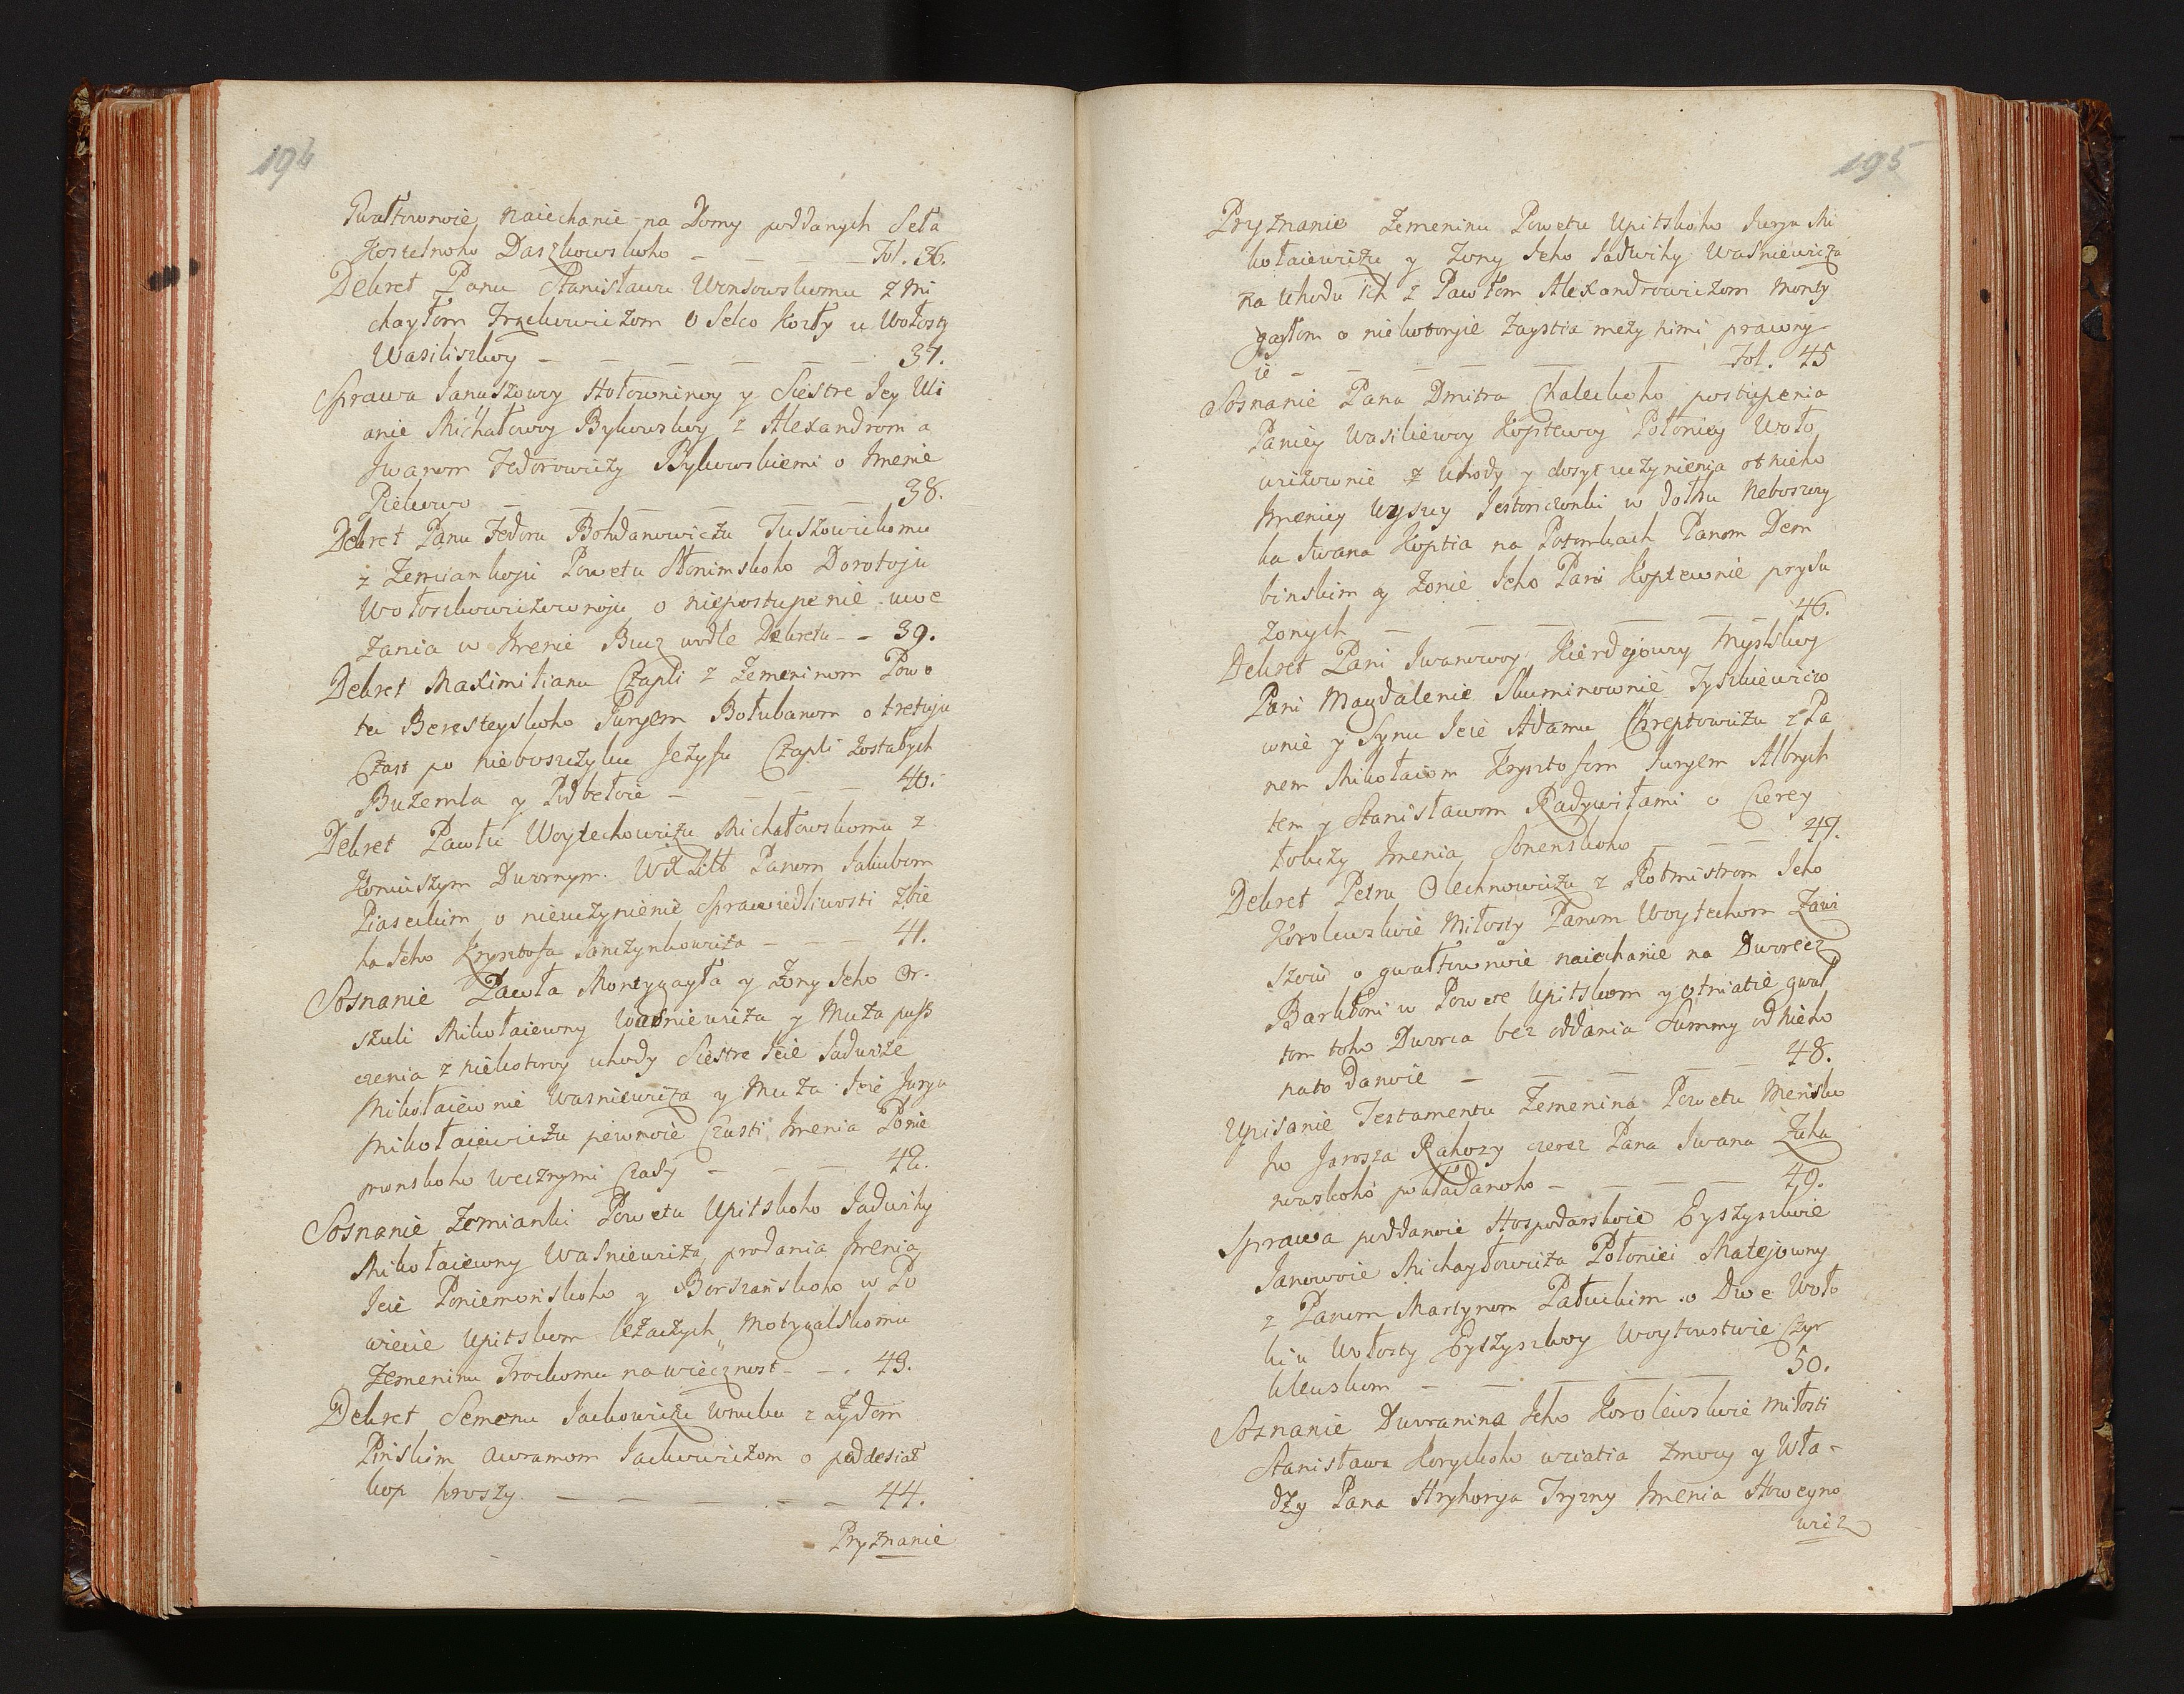 194
Gwałtownoie naiechanie na Domy poddanych Seła
Kostelnoho Daszkowskoho — — — — Fol. 36.
Dekret Panu Stanisławu Wonsowskomu z Mi
chayłom Frąckowiczom o Selco Kozły u Wołosty
Wasiliszkoy — — — — — — 37.
Sprawa Januszowoy Hołowninoy y Siestre Jey Uli
anie Michałowoy Bykowskoy z Alexandrom a
Jwanom Fedorowiczy Bykowskiemi o Jmenie
Piekowo — — — — — — 38.
Dekret Panu Fedoru Bohdanowiczu Tuszowickomu
z Zemiankoju Powetu Słonimskoho Dorotoju
Wołoskowiczownoju o niepostupenie uwe
zania w Jmenie Bucz wodle Dekretu – – 39.
Dekret Maximilianu Czapli z Zemeninom Powe
tu Beresteyskoho Juryem Bołubanom o tretiuju
Czast po nieboszczyku Jezyfu Czapli zostałych
Buzemla y Podbełoie — — — — 40.
Dekret Pawłu Woytechowiczu Michałowskomu z
Koniuszym Dwornym W X Litt Panom Jakubom
Piaseckim o nieuczynienie Sprawiedliwosti z bie
ha Jeho Krysztofa Janczynkowicza — — — 41.
Sosnanie Pawła Montygayła y Zony Jeho Or-
szuli Mikołaiewny Waśniewicza y Muża pusz
czenia z niekotoroy uhody Siestre Jeie Jadwize
Mikołaiewnie Waśniewicza y Muża Jeie Jurya
Mikołaiewiczu pewnoie Czasti Jmenia Ponie
monskoho wecznymi Czasy — — — 42.
Sosnanie Zemianki Powetu Upitskoho Jadwihy
Mikołaiewny Waśniewicza prodania Jmenia
Jeie Poniemońskoho y Borszańskoho w Po
wiecie Upitskom leżaczych Motygalskomu
Zemeninu Trockomu na wiecznost – – 43.
Dekret Semenu Jackowiczu Wnuku z Żydom
Pińskim Awramom Jackowiczom o piddesiat
kop hroszy. — — — — — 44.
Pryznanie
195
Pryznanie Zemeninu Powetu Upitskoho Jurju Mi
kołaiewiczu y Zony Jeho Jadwihy Waśniewicza
na Uhodu ich z Pawłom Alexandrowiczom Monty
gayłom o niekotoryie Zaystia meży nimi prawny
ie — — — — — — Fol. 45
Sosnanie Pana Dmitra Chaleckoho postupenia
Paniey Wasiliewoy Koptewoy Połoniey Woło
wiczownie z Uhody y dosyt uczynienia ot nieho
Jmeniey Wysuy Jestomlonki w dołhu Neboszczy
ka Jwana Koptia na Potomkach Panom Dem
binskim y Zonie Jeho Pani Koptewnie prysu
zonych — — — — — — 46.
Dekret Pani Jwanowoy Kierdejowy Mystskoy
Pani Magdalenie Skuminownie Tyszkiewiczo
wnie y Synu Jeie Adamu Chreptowiczu z Pa
nem Mikołaiom Krysztofom Juryem Albrych
tem y Stanisławom Radziwiłami o Cierey
Łobczy Jmenia Sonenskoho — — — 47.
Dekret Petru Olechnowiczu z Rotmistrom Jeho
Korolewskoie Miłosty Panom Woytechom Zawi
szoiu o gwałtownoie naiechanie na Dworecz
Barkłoni w Powete Upitskom y otniatie gwał
tom toho Dworca bez oddania Summy od nieho
nato Danoie — — — — — 48.
Upisanie Testamentu Zemenina Powetu Mensko
ho Jarosza Rahozy czerez Pana Jwana Zaha
rowskoho pokładanoho — — — — 49.
Sprawa poddanoie Hospodarskoie Eyszyszkoie
Janowoie Michayłowicza Połoniei Matejowny
z Panom Martynom Pałuckim o Dwe Woło
ki u Wołosty Eyszyszkoy Woytowstwie Czyr
kleuskom — — — — — — 50.
Sosnanie Dworanina Jeho Korolewskoie miłosti
Stanisława Koryckoho wziatia z mocy y Wła-
dzy Pana Hryhorya Tryzny Jmenia Howeyno
wicz